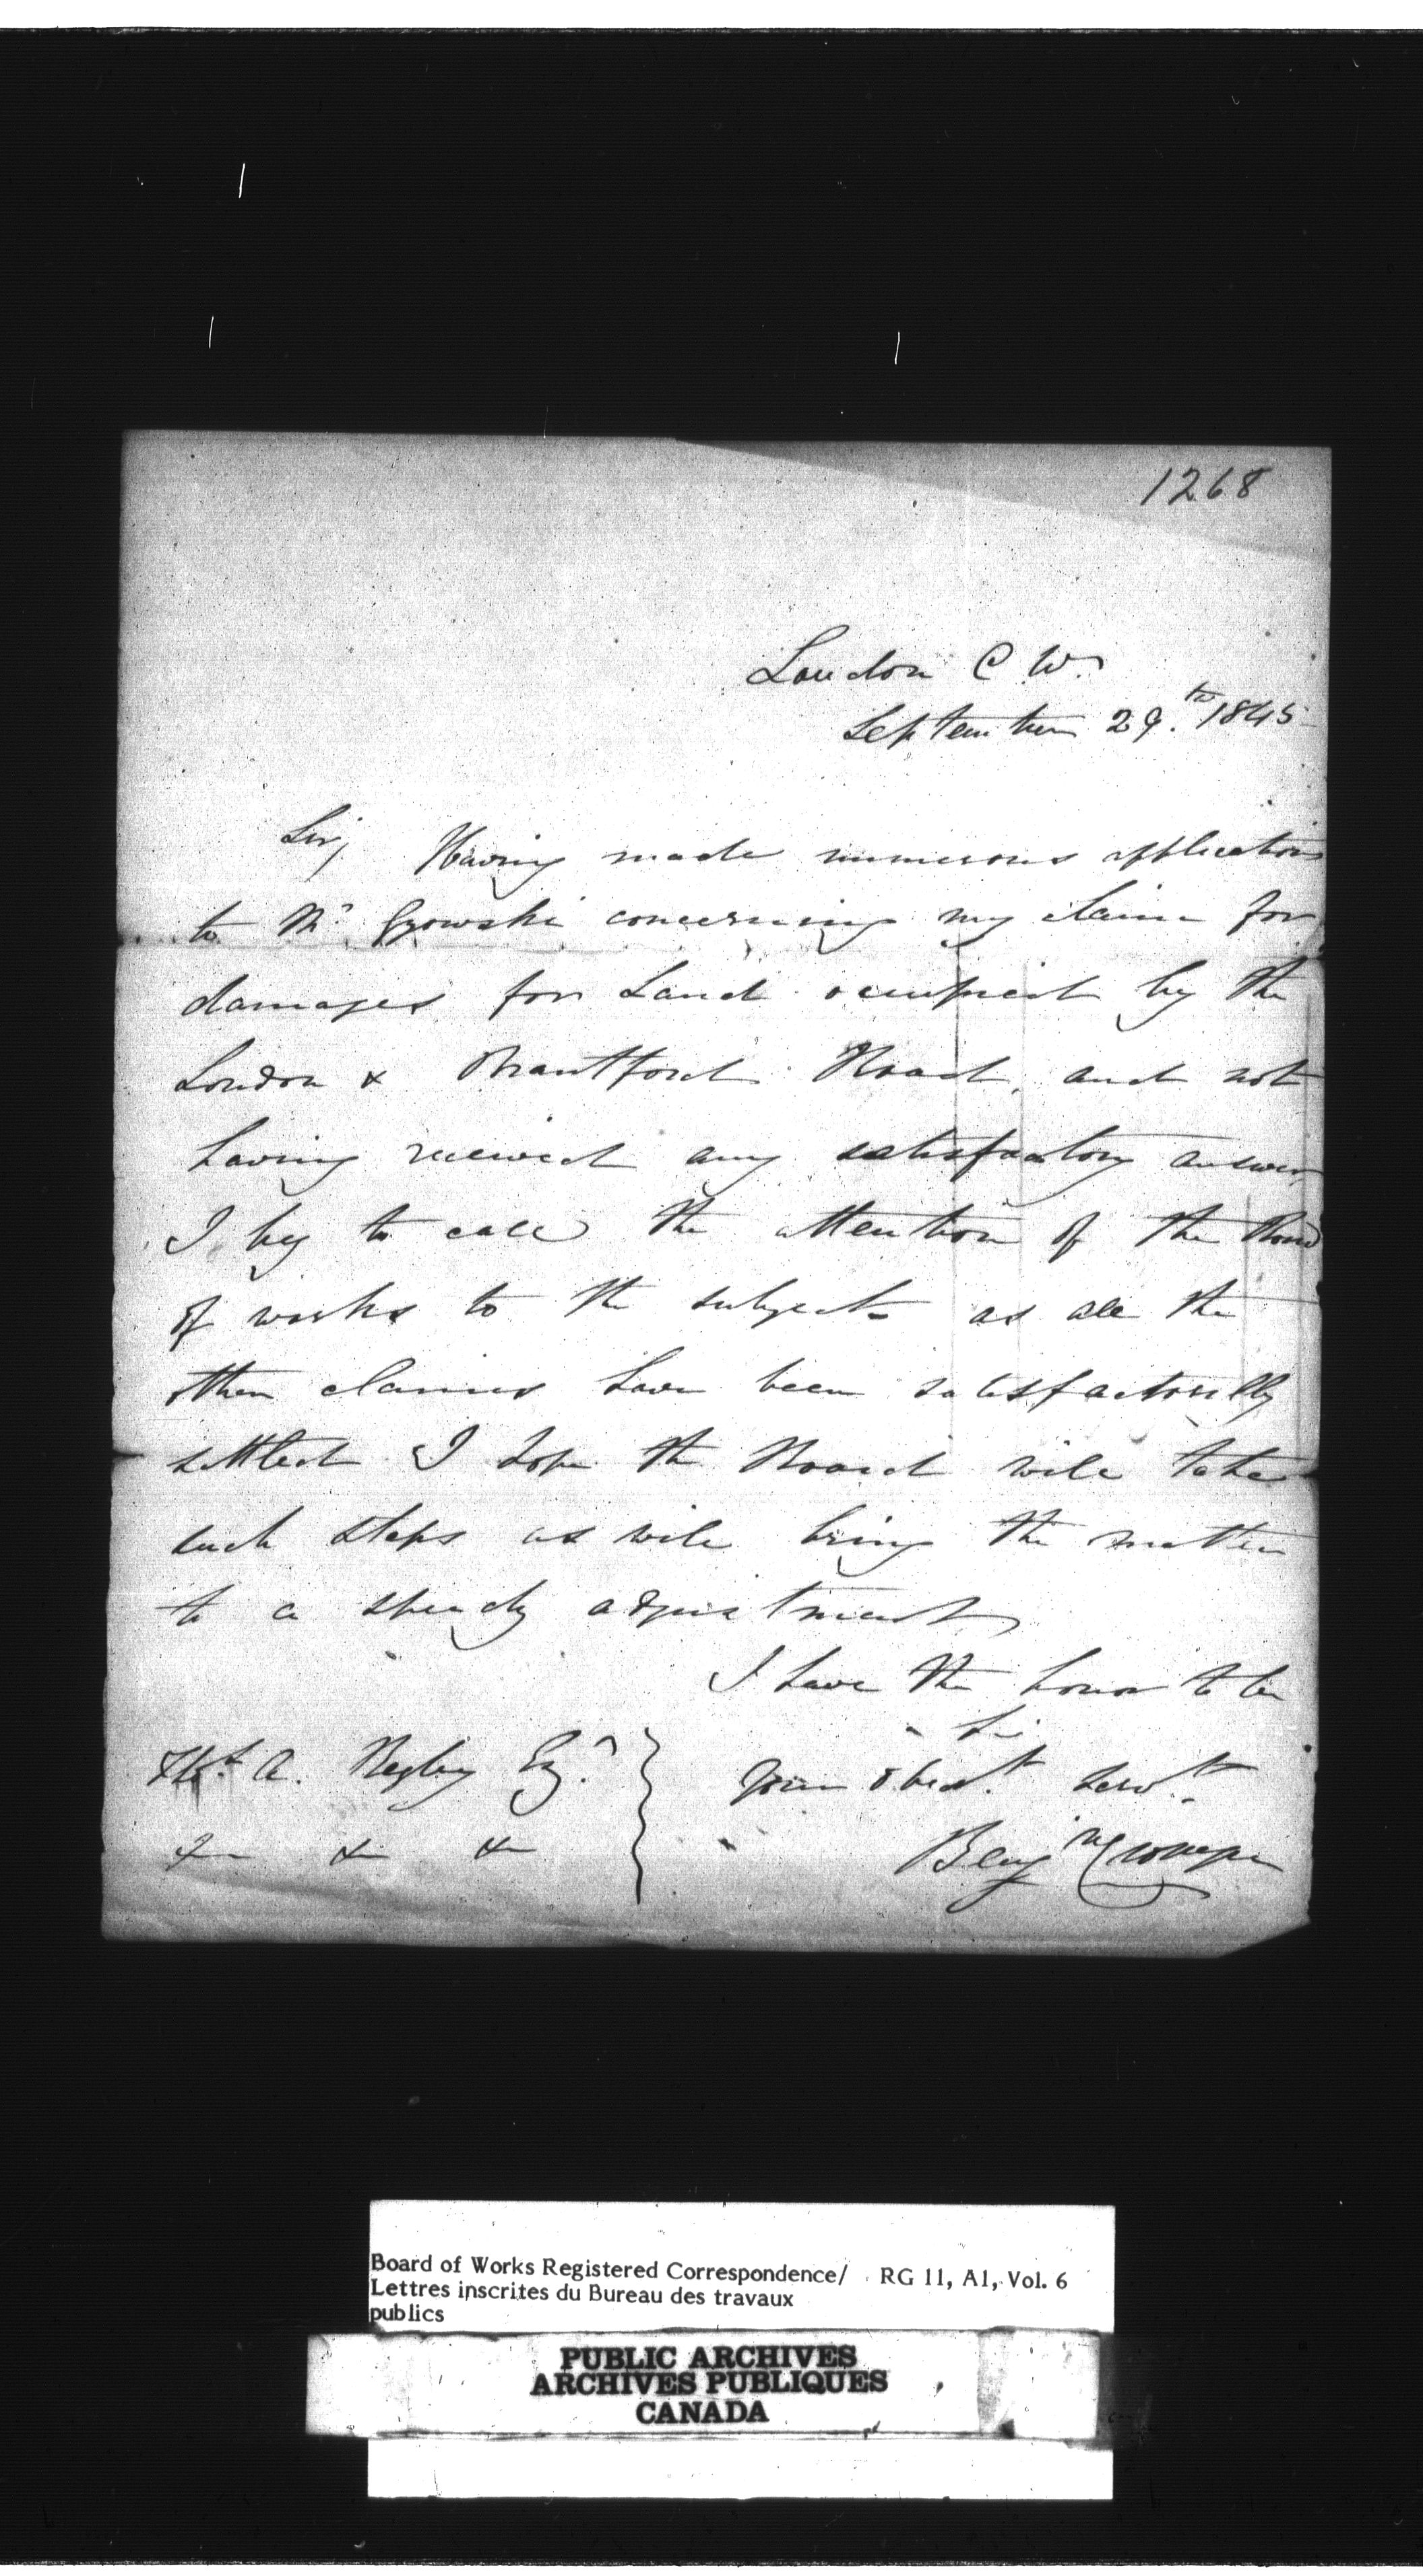 1268
London C. W.
September 29.th 1845
Sir, Having made numerous applications
to Mr Gzowski concerning my claim for
damages for Land occupied by the
London & Brantford Road, and not
having received any satisfactory answer
I beg to call the attention of the Board
of works to the subject as all the
other claims have been satisfactorilly
settled I hope the Board will take
such steps as will bring the matter
to a speedy adjustment
I have the honor to be
Sir
Your obedt. servt.
Thos. A. Begly Esqr.
&c &c &c
Benj
Board of Works Registered Correspondence/ RG 11, A1, Vol. 6
Lettres inscrites du Bureau des travaux
publics
PUBLIC ARCHIVES
ARCHIVES PUBLIQUES
CANADA